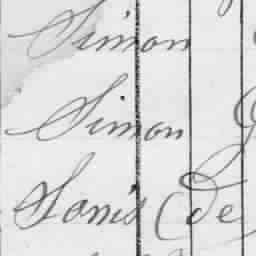 Simon
Simon
Louis (de